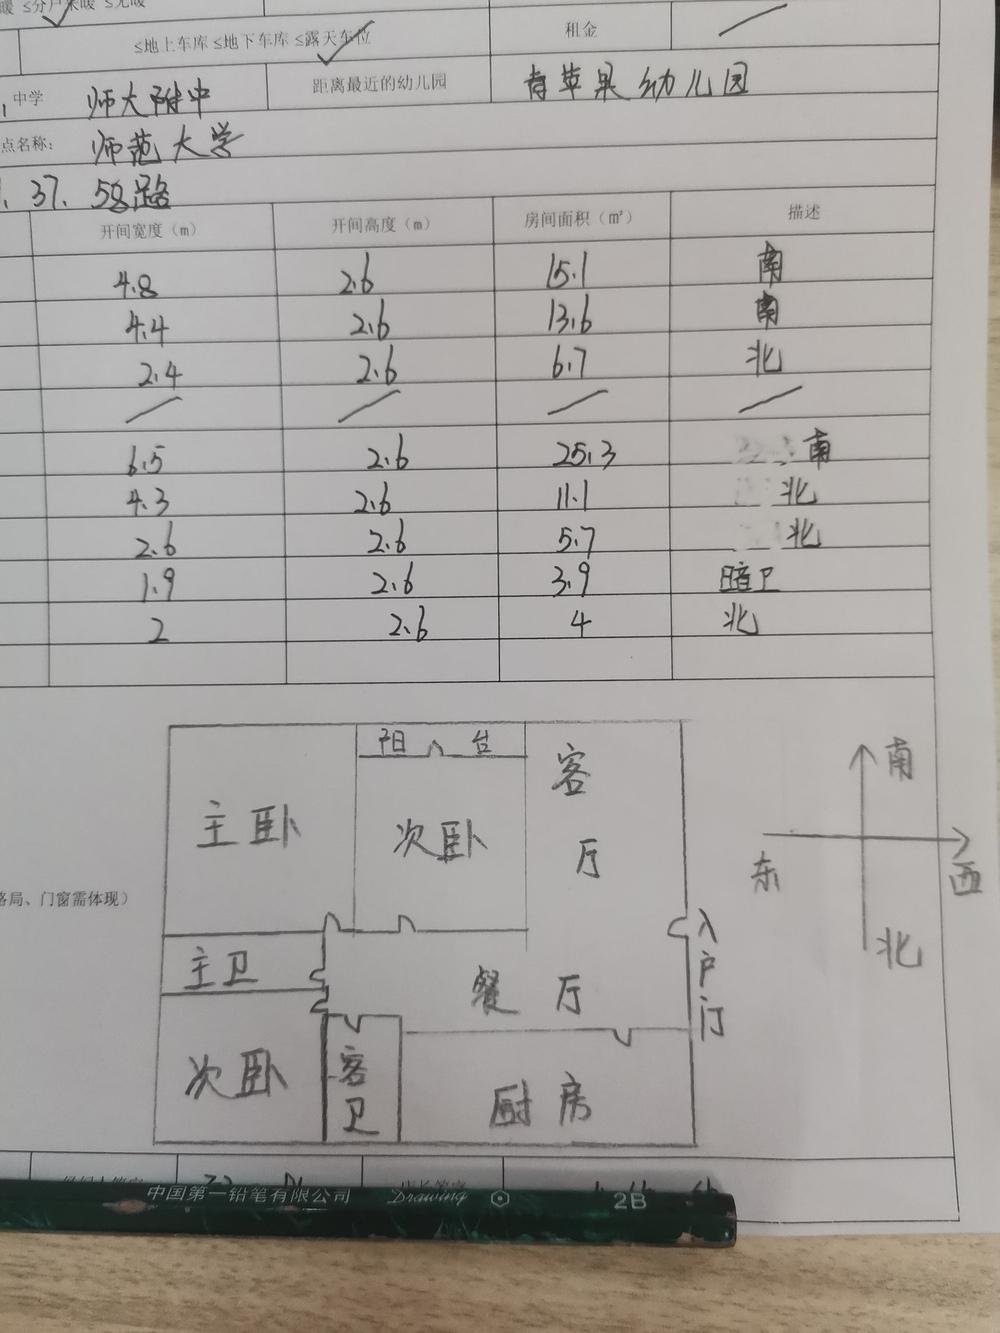 暖 ≤分户采暖 ≤无暖
≤地上车库 ≤地下车库 ≤露天车位 租金
中学 师大附中 距离最近的幼儿园 青苹果幼儿园
点名称: 师范大学
37. 58路
开间宽度（m） 开间高度（m） 房间面积（㎡） 描述
4.8 2.6 15.1 南
4.4 2.6 13.6 南
2.4 2.6 6.7 北
6.5 2.6 25.3 南
4.3 2.6 11.1 北
2.6 2.6 5.7 北
1.9 2.6 3.9 暗卫
2 2.6 4 北
阳台 客厅
主卧 次卧
南
东 西
北
格局、门窗需体现）
入户门
主卫 餐厅
次卧 客卫 厨房
中国第一铅笔有限公司 Drawing 2B